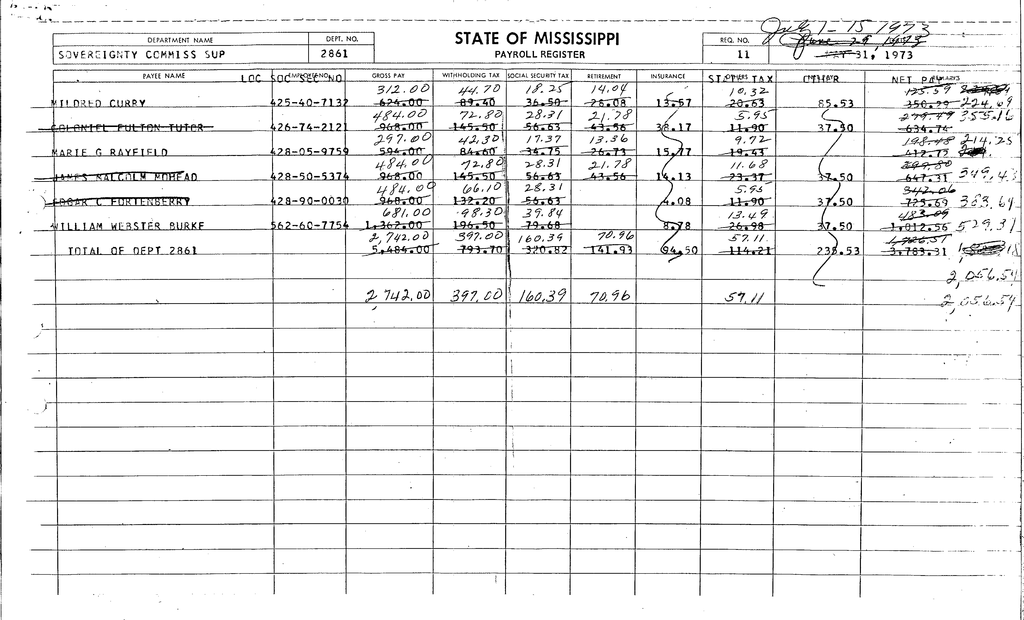 July 1-15 1973
June 29, 1973
DEPARTMENT NAME DEPT. NO. STATE OF MISSISSIPPI REQ. NO.
SOVEREIGNTY COMMISS SUP 2861 PAYROLL REGISTER 11 31, 1973
PAYEE NAME LOC SOC SEC NO GROSS PAY WITHHOLDING TAX SOCIAL SECURITY TAX RETIREMENT INSURANCE ST TAX OTHER NET PAY
312.00 44.70 18.25 14.04 10.32 125.59
MILDRED CURRY 425-40-7132 624.00 89.40 36.50 28.08 13.57 20.63 85.53 350.29 224.69
484.00 72.80 28.31 21.78 5.95 279.49 355.16
COLONIEL FULTON TUTOR 426-74-2121 968.00 145.50 56.63 43.56 38.17 11.90 37.50 634.74
297.00 42.30 17.37 13.36 9.72 198.48 214.25
MARIE G RAYFIELD 428-05-9759 594.00 84.60 34.75 26.73 15.77 19.43 412.72
484.00 72.80 28.31 21.78 11.68 299.80
JAMES MALCOLM MOHEAD 428-50-5374 968.00 145.50 56.63 43.56 14.13 23.37 37.50 647.31 349.43
484.00 66.10 28.31 5.95 342.06
EDGAR C FORTENBERRY 428-90-0030 968.00 132.20 56.63 4.08 11.90 37.50 725.69 383.64
681.00 98.30 39.84 13.49 483.09
WILLIAM WEBSTER BURKE 562-60-7754 1,362.00 196.50 79.68 8.78 26.98 37.50 1,012.56 529.31
2,742.00 397.00 160.39 70.96 57.11
TOTAL OF DEPT 2861 5,484.00 793.70 320.82 141.93 94.50 114.21 235.53 3,783.31
2,056.54
2,742.00 397.00 160.39 70.96 57.11 2,056.54